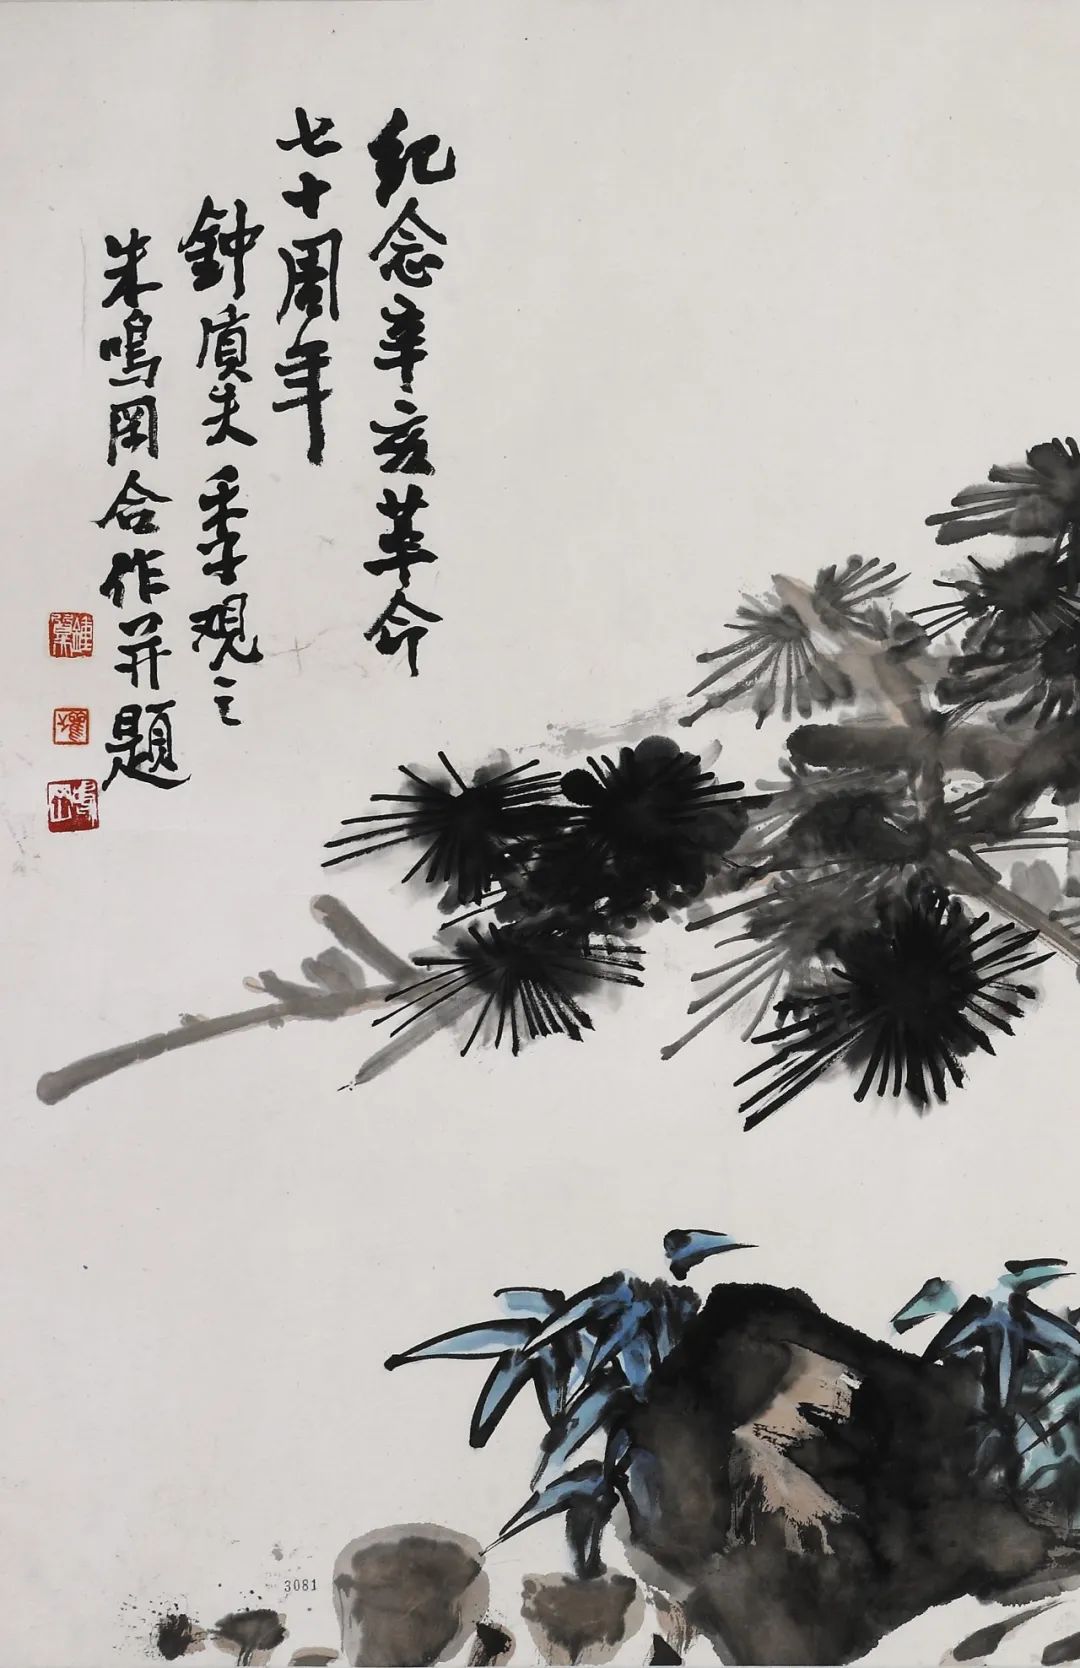 纪念辛亥革命
七十周年
鈡貭夫季观之
朱鳴岡合作并题
3081